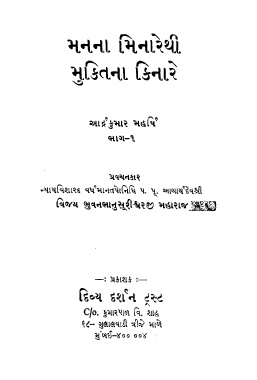 મનના મિનારેથી
મુક્તિના કિનારે
આર્દ્રકુમાર મહર્ષિ
ભાગ-૧
પ્રવચનકાર
ન્યાયવિશારદ વર્ધમાનતપોનિધિ પ. પૂ. આચાર્યદેવશ્રી
વિજય ભુવનભાનુસૂરીશ્વરજી મહારાજ
—: પ્રકાશક :—
દિવ્ય દર્શન ટ્રસ્ટ
C/o. કુમારપાળ વિ. શાહ
૬૮– ગુલાલવાડી ત્રીજે માળે
મુંબઈ-૪૦૦ ૦૦૪